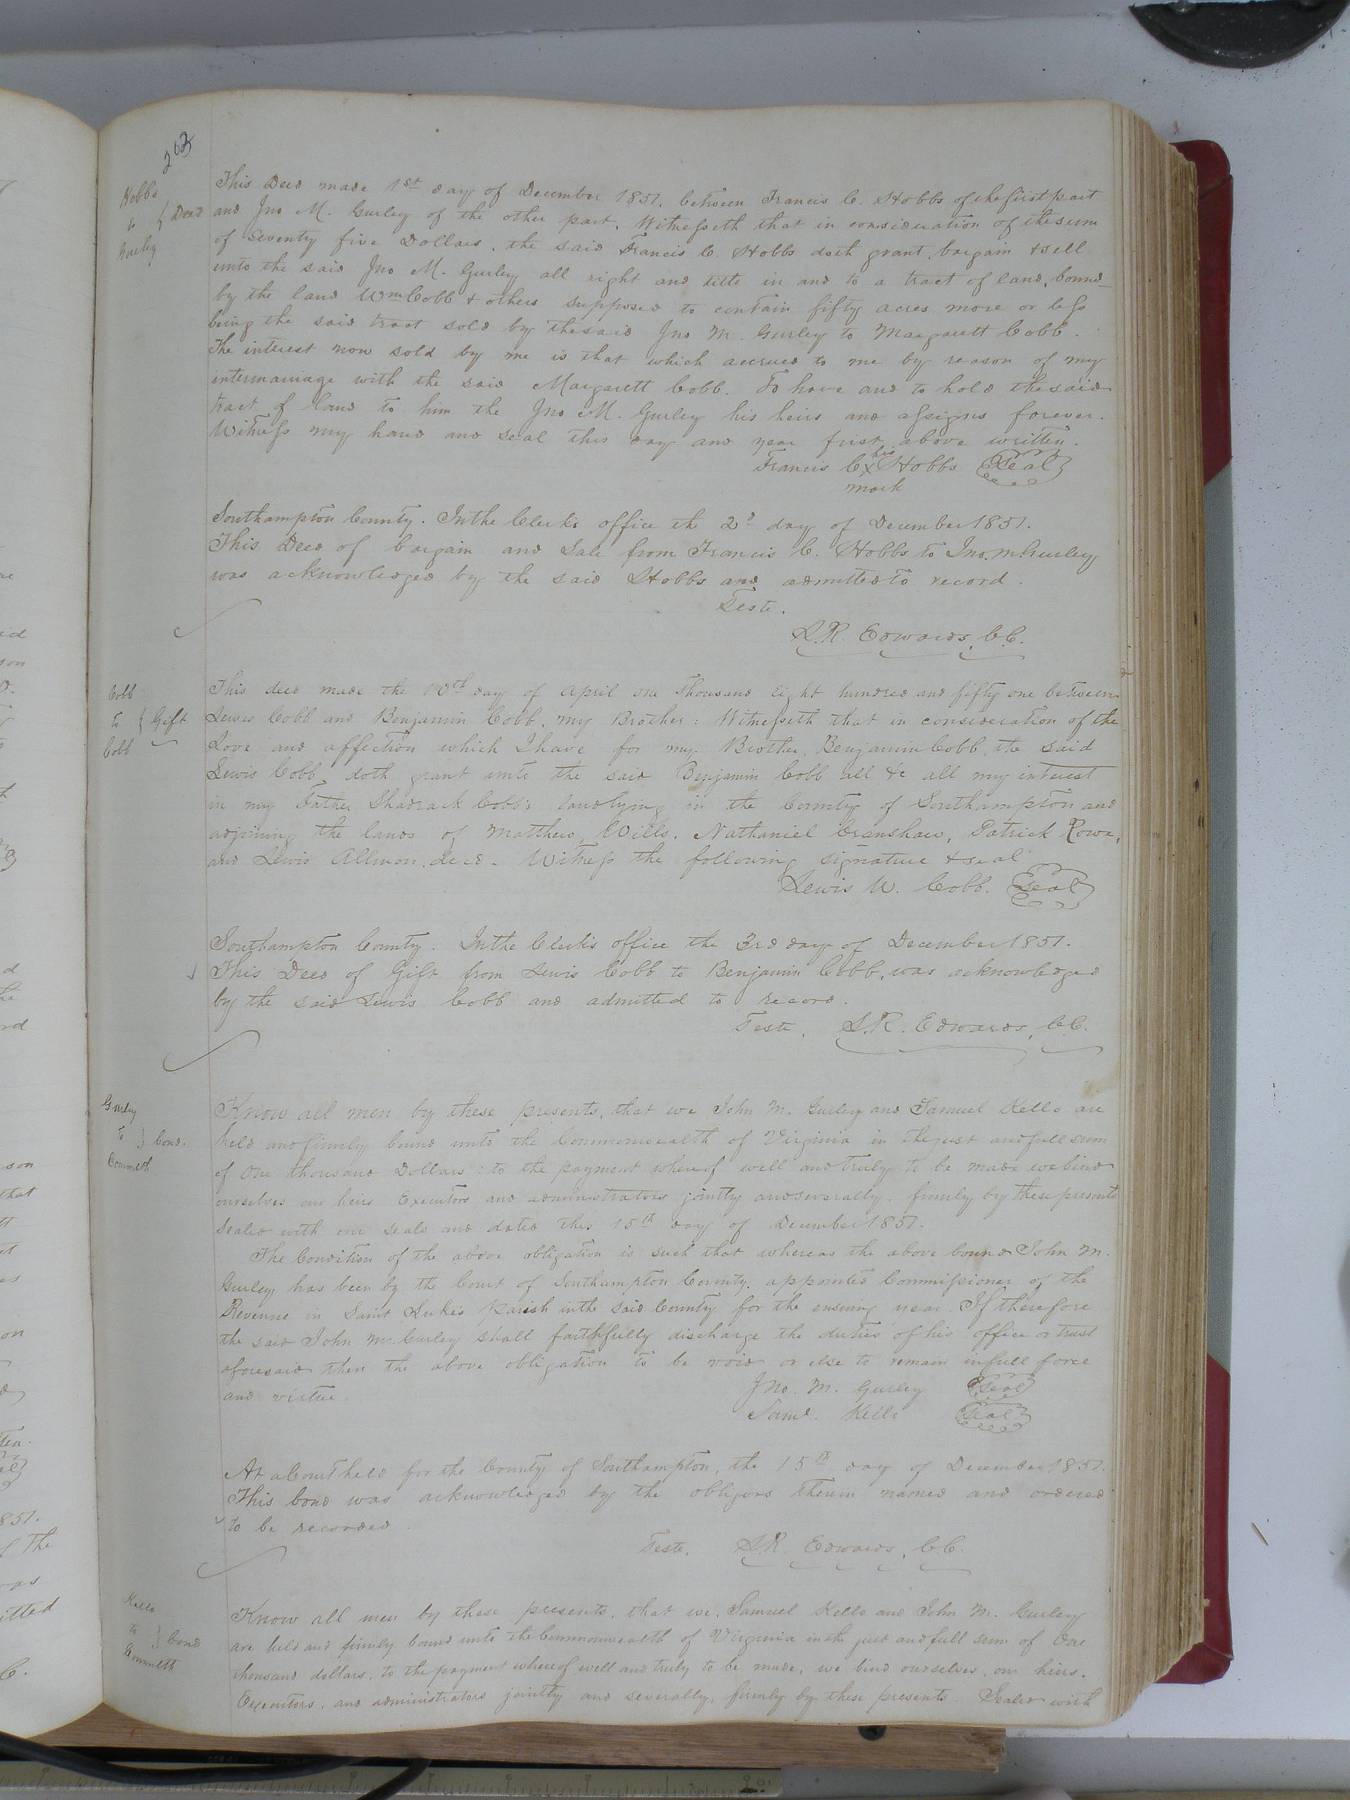 263
Hobbs
to } Deed
Gurley
This Deed made 1st day of December 1851. between Francis C. Hobbs of the first part
and Jno M. Gurley of the other part, Witnesseth that in consideration of the sum
of Seventy five Dollars. the said Francis C. Hobbs doth grant, bargain & sell
unto the said Jno M. Gurley all right and title in and to a tract of land, bound
by the land Wm Cobb & others supposed to contain fifty acres more or less
being the said tract sold by the said Jno M. Gurley to Margarett Cobb.
The interest now sold by me is that which accrued to me by reason of my
intermarriage with the said Margarett Cobb. To have and to hold the said
tract of land to him the Jno M. Gurley his heirs and assigns forever.
Witness my hand and seal this day and year first above written.
his
Francis C x Hobbs Seal
mark
Southampton County. In the Clerks office the 2d day of December 1851.
This Deed of bargain and Sale from Francis C. Hobbs to Jno. M Gurley
was acknowledged by the said Hobbs and admitted to record.
Teste.
L.R. Edwards, C.C.
Cobb
to } Gift
Cobb
This deed made the 10th day of April one thousand eight hundred and fifty one between
Lewis Cobb and Benjamin Cobb, my Brother: Witnesseth that in consideration of the
Love and affection which I have for my Brother, Benjamin Cobb, the said
Lewis Cobb, doth grant unto the said Benjamin Cobb all &c all my interest
in my Father Shadrack Cobb's land lying in the County of Southampton and
adjoining the lands of Matthew Wills, Nathaniel Cranshaw, Patrick Rowe,
and Lewis Allmon, decd. Witness the following signature & seal
Lewis W. Cobb. Seal
Southampton County. In the Clerks office the 3rd day of December 1851.
This Deed of Gift from Lewis Cobb to Benjamin Cobb, was acknowledged
by the said Lewis Cobb and admitted to record.
Teste, L.R. Edwards, C.C.
Gurley
to } bond.
Commwth
Know all men by these presents, that we John M. Gurley and Samuel Kello are
held and firmly bound unto the Commonwealth of Virginia in the just and full sum
of One thousand Dollars: to the payment whereof well and truly to be made we bind
ourselves our heirs Executors and administrators jointly and severally. firmly by these presents
Sealed with our seals and dated this 15th day of December 1851.
The Condition of the above obligation is such that whereas the above bound John M.
Gurley has been by the Court of Southampton County, appointed Commissioner of the
Revenue in Saint Lukes Parish in the said County for the ensuing year. If therefore
the said John M. Gurley shall faithfully discharge the duties of his office or trust
aforesaid then the above obligation to be void or else to remain in full force
and virtue.
Jno. M. Gurley Seal
Saml. Kello Seal
At a Court held for the County of Southampton, the 15th day of December 1851.
This bond was acknowledged by the obligors therein named and ordered
to be recorded.
Teste. L.R. Edwards, C.C.
Kello
to } bond
Commwth
Know all men by these presents, that we, Samuel Kello and John M. Gurley
are held and firmly bound unto the Commonwealth of Virginia in the just and full sum of One
thousand dollars, to the payment whereof well and truly to be made, we bind ourselves, our heirs,
Executors, and administrators jointly and severally, firmly by these presents. Sealed with